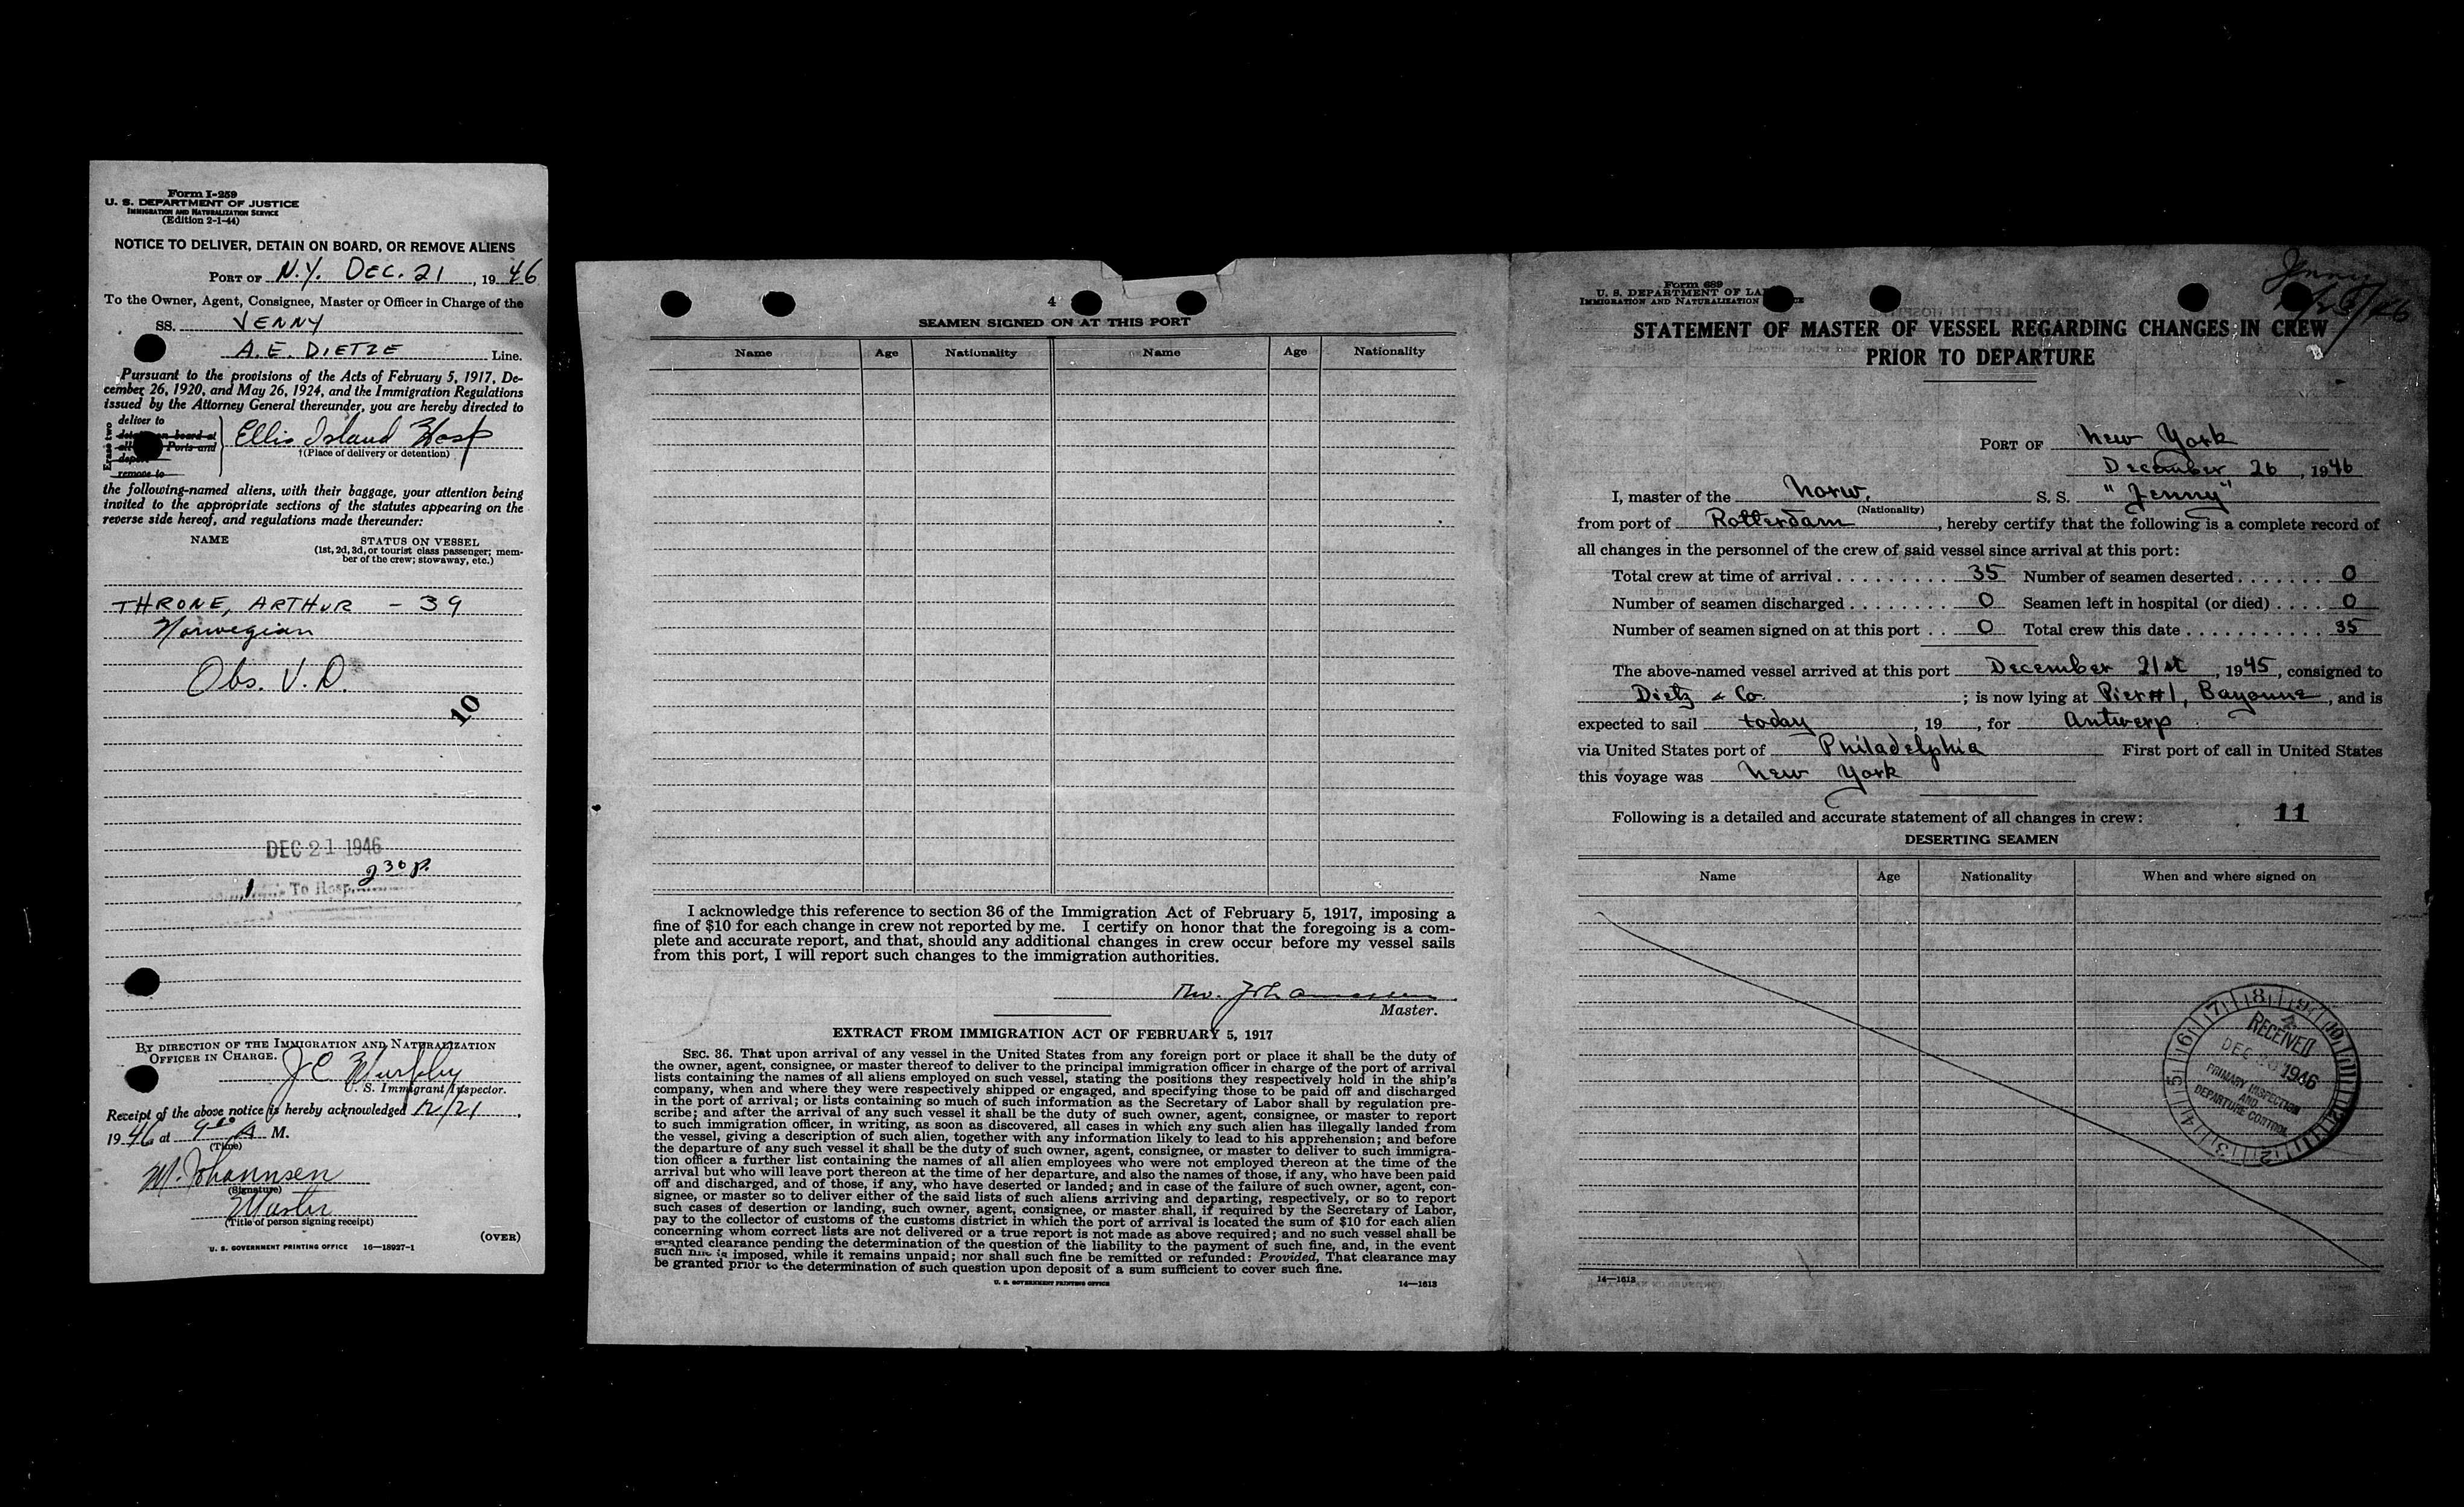 Form I-259
U. S. DEPARTMENT OF JUSTICE
IMMIGRATION AND NATURALIZATION SERVICE
(Edition 2-1-44)
NOTICE TO DELIVER, DETAIN ON BOARD, OR REMOVE ALIENS
PORT OF N.Y. DEC. 21, 1946
To the Owner, Agent, Consignee, Master or Officer in Charge of the
SS. JENNY
A.E. DIETZE Line.
Pursuant to the provisions of the Acts of February 5, 1917, De-
cember 26, 1920, and May 26, 1924, and the Immigration Regulations
issued by the Attorney General thereunder, you are hereby directed to
Erase two
deliver to
on board at
all Ports and
remove to
Ellis Island Hosp
†(Place of delivery or detention)
the following-named aliens, with their baggage, your attention being
invited to the appropriate sections of the statutes appearing on the
reverse side hereof, and regulations made thereunder:
NAME STATUS ON VESSEL
(1st, 2d, 3d, or tourist class passenger; mem-
ber of the crew; stowaway, etc.)
THRONE, ARTHUR - 39
Norwegian
Obs. V.D.
10
DEC 21 1946
2 30 P.
1 To Hosp.
BY DIRECTION OF THE IMMIGRATION AND NATURALIZATION
OFFICER IN CHARGE.
J C Murphy
U. S. Immigrant Inspector.
Receipt of the above notice is hereby acknowledged 12/21,
1946 at 9 00 A M.
(Time)
M. Johannsen
(Signature)
Master
(Title of person signing receipt)
(OVER)
U. S. GOVERNMENT PRINTING OFFICE 16—18927-1
4
SEAMEN SIGNED ON AT THIS PORT
Name Age Nationality Name Age Nationality
I acknowledge this reference to section 36 of the Immigration Act of February 5, 1917, imposing a
fine of $10 for each change in crew not reported by me. I certify on honor that the foregoing is a com-
plete and accurate report, and that, should any additional changes in crew occur before my vessel sails
from this port, I will report such changes to the immigration authorities.
Master.
EXTRACT FROM IMMIGRATION ACT OF FEBRUARY 5, 1917
SEC. 36. That upon arrival of any vessel in the United States from any foreign port or place it shall be the duty of
the owner, agent, consignee, or master thereof to deliver to the principal immigration officer in charge of the port of arrival
lists containing the names of all aliens employed on such vessel, stating the positions they respectively hold in the ship's
company, when and where they were respectively shipped or engaged, and specifying those to be paid off and discharged
in the port of arrival; or lists containing so much of such information as the Secretary of Labor shall by regulation pre-
scribe; and after the arrival of any such vessel it shall be the duty of such owner, agent, consignee, or master to report
to such immigration officer, in writing, as soon as discovered, all cases in which any such alien has illegally landed from
the vessel, giving a description of such alien, together with any information likely to lead to his apprehension; and before
the departure of any such vessel it shall be the duty of such owner, agent, consignee, or master to deliver to such immigra-
tion officer a further list containing the names of all alien employees who were not employed thereon at the time of the
arrival but who will leave port thereon at the time of her departure, and also the names of those, if any, who have been paid
off and discharged, and of those, if any, who have deserted or landed; and in case of the failure of such owner, agent, con-
signee, or master so to deliver either of the said lists of such aliens arriving and departing, respectively, or so to report
such cases of desertion or landing, such owner, agent, consignee, or master shall, if required by the Secretary of Labor,
pay to the collector of customs of the customs district in which the port of arrival is located the sum of $10 for each alien
concerning whom correct lists are not delivered or a true report is not made as above required; and no such vessel shall be
granted clearance pending the determination of the question of the liability to the payment of such fine, and, in the event
such fine is imposed, while it remains unpaid; nor shall such fine be remitted or refunded: Provided, That clearance may
be granted prior to the determination of such question upon deposit of a sum sufficient to cover such fine.
U. S. GOVERNMENT PRINTING OFFICE 14—1613
Jenny
Form 689
U. S. DEPARTMENT OF LA
IMMIGRATION AND NATURALIZATION
STATEMENT OF MASTER OF VESSEL REGARDING CHANGES IN CREW
PRIOR TO DEPARTURE
PORT OF New York
December 26, 1946
I, master of the Norw. S. S. "Jenny"
(Nationality)
from port of Rotterdam, hereby certify that the following is a complete record of
all changes in the personnel of the crew of said vessel since arrival at this port:
Total crew at time of arrival 35 Number of seamen deserted 0
Number of seamen discharged 0 Seamen left in hospital (or died) 0
Number of seamen signed on at this port 0 Total crew this date 35
The above-named vessel arrived at this port December 21st, 1945, consigned to
Dietz & Co.; is now lying at Pier #1, Bayonne, and is
expected to sail today, 19, for Antwerp
via United States port of Philadelphia First port of call in United States
this voyage was New York
Following is a detailed and accurate statement of all changes in crew: 11
DESERTING SEAMEN
Name Age Nationality When and where signed on
RECEIVED
DEC 1946
PRIMARY INSPECTION
AND
DEPARTURE CONTROL
14—1613